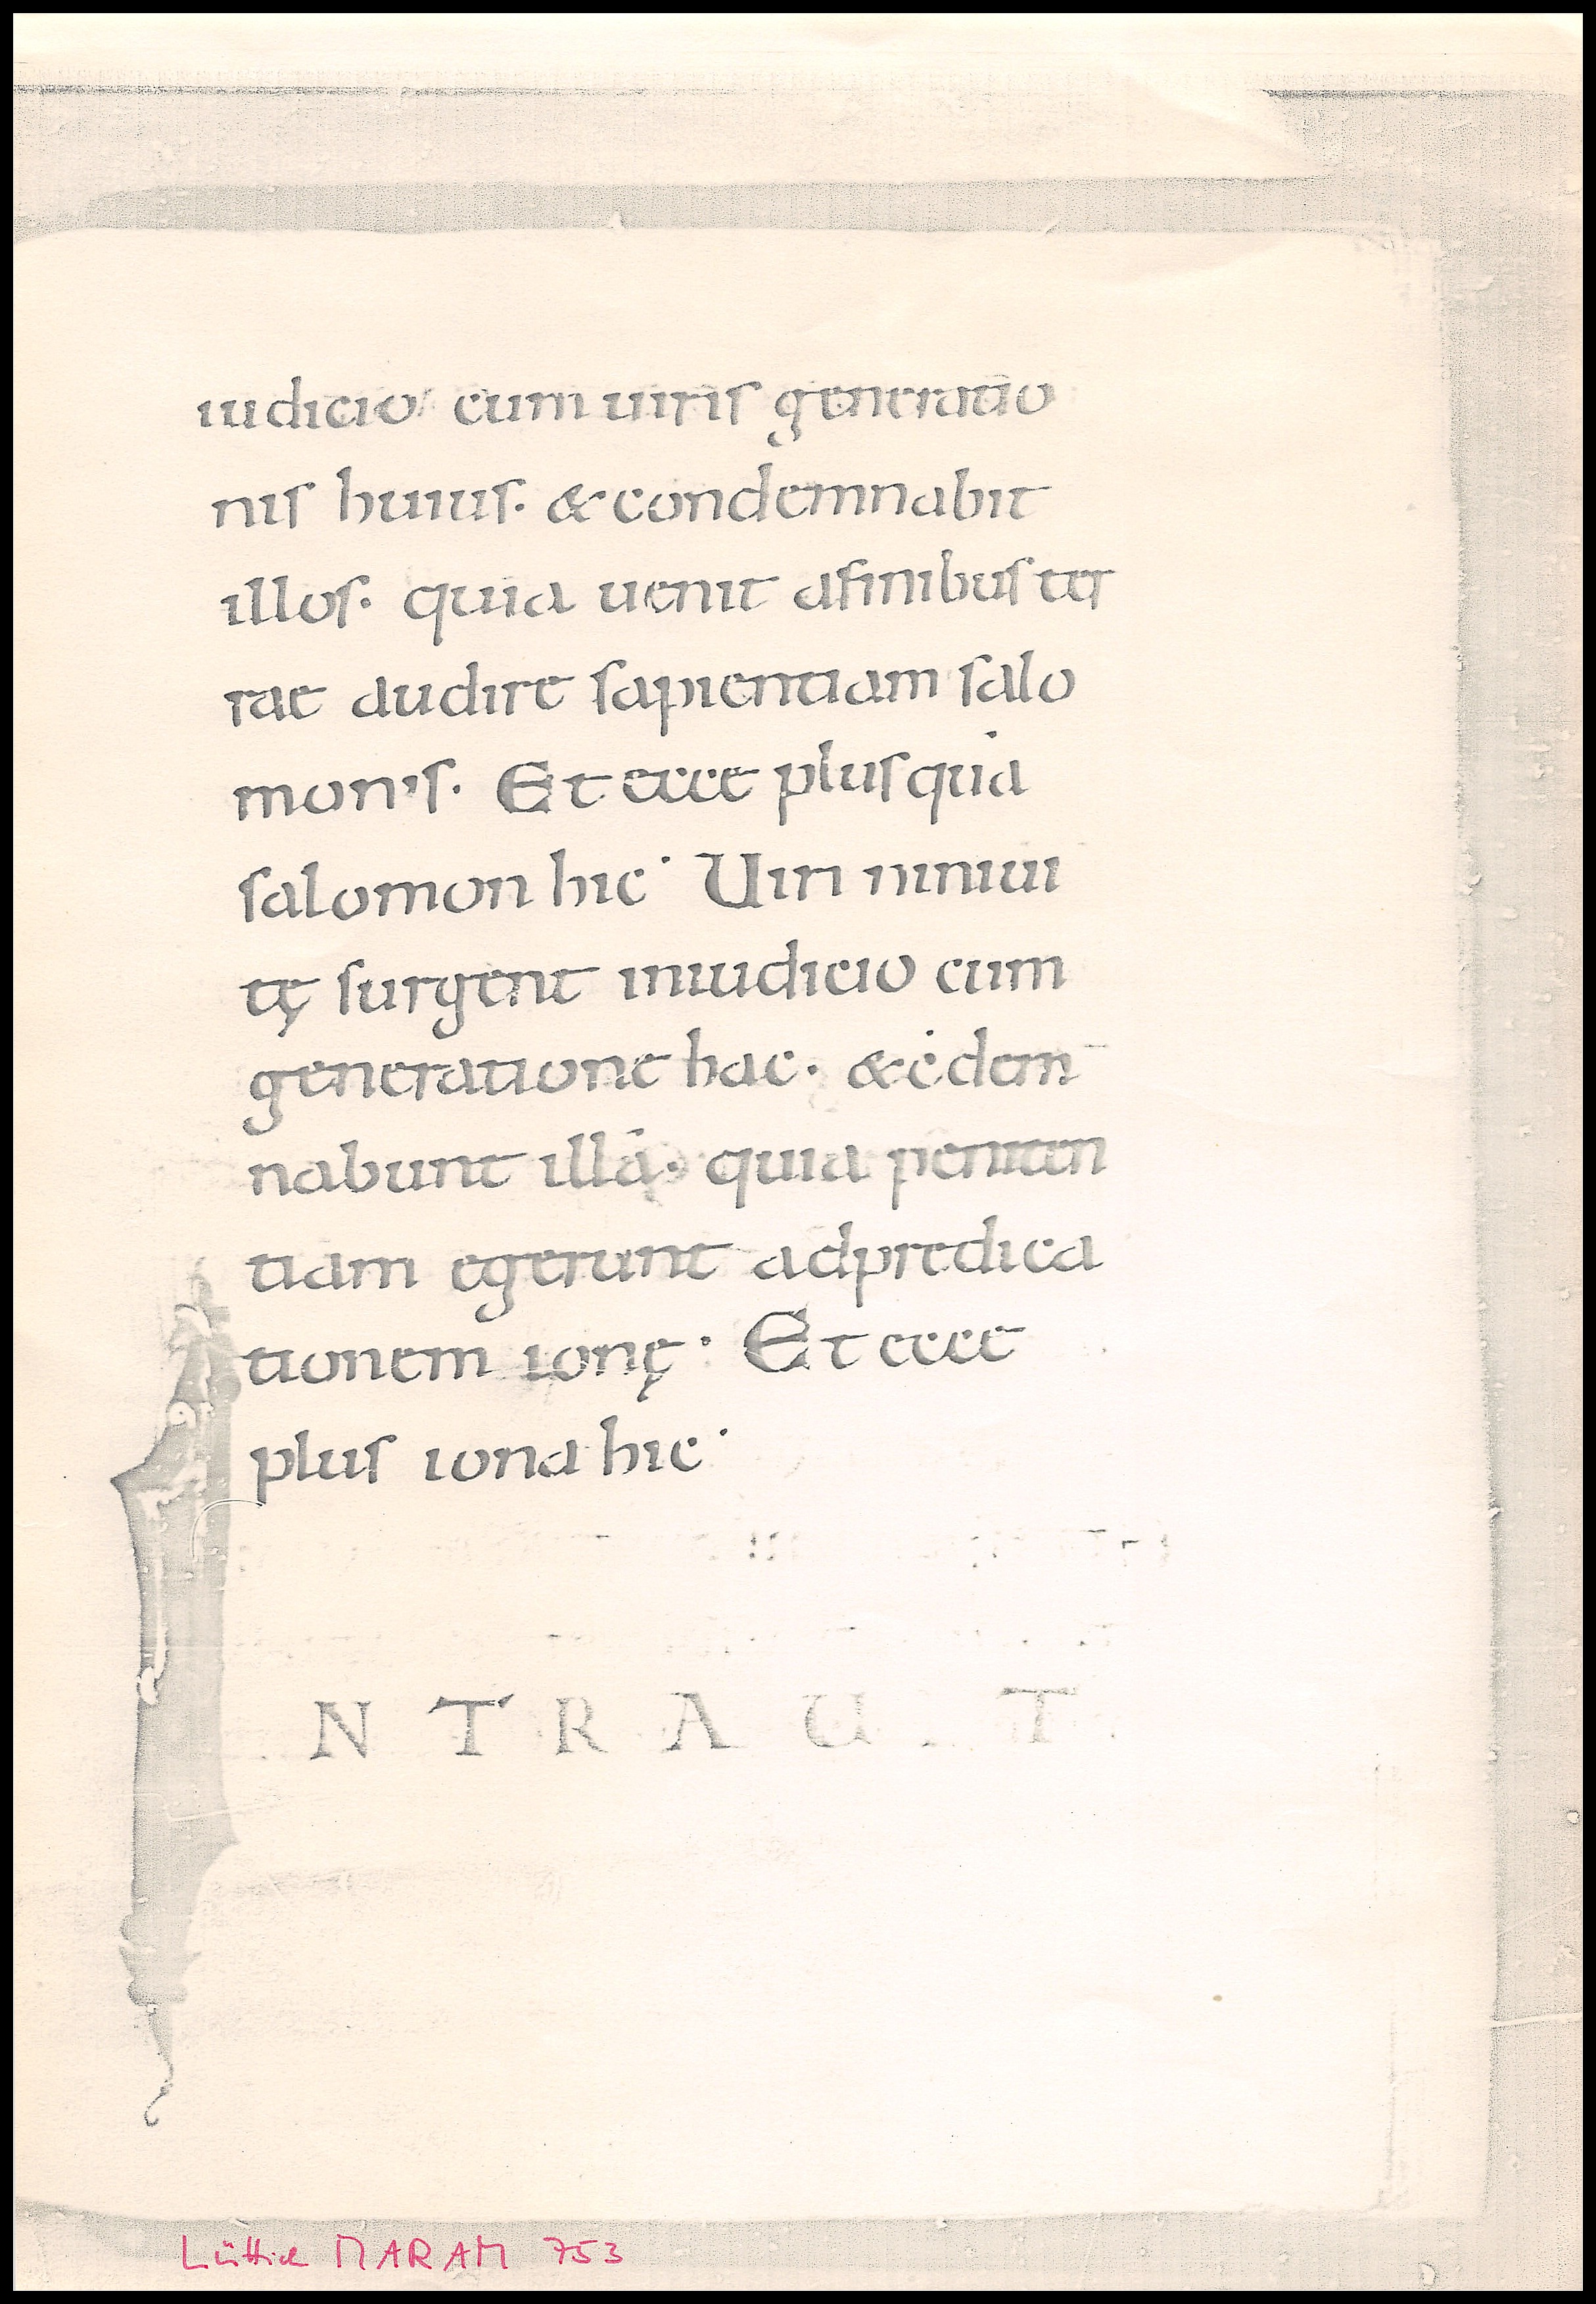 iudicio cum uiris generatio
nis huius. & condemnabit
illos. quia uenit afinibus ter
rae audire sapientiam salo
monis. Et ecce plus quā
salomon hic. Uiri niniui
tę surgent iniudicio cum
generatione hac. & cōdem
nabunt illā. quia peniten
tiam egerunt adpredica
tionem ionę. Et ecce
plus iona hic.
N T R A U T
Lüttich MARAM 753